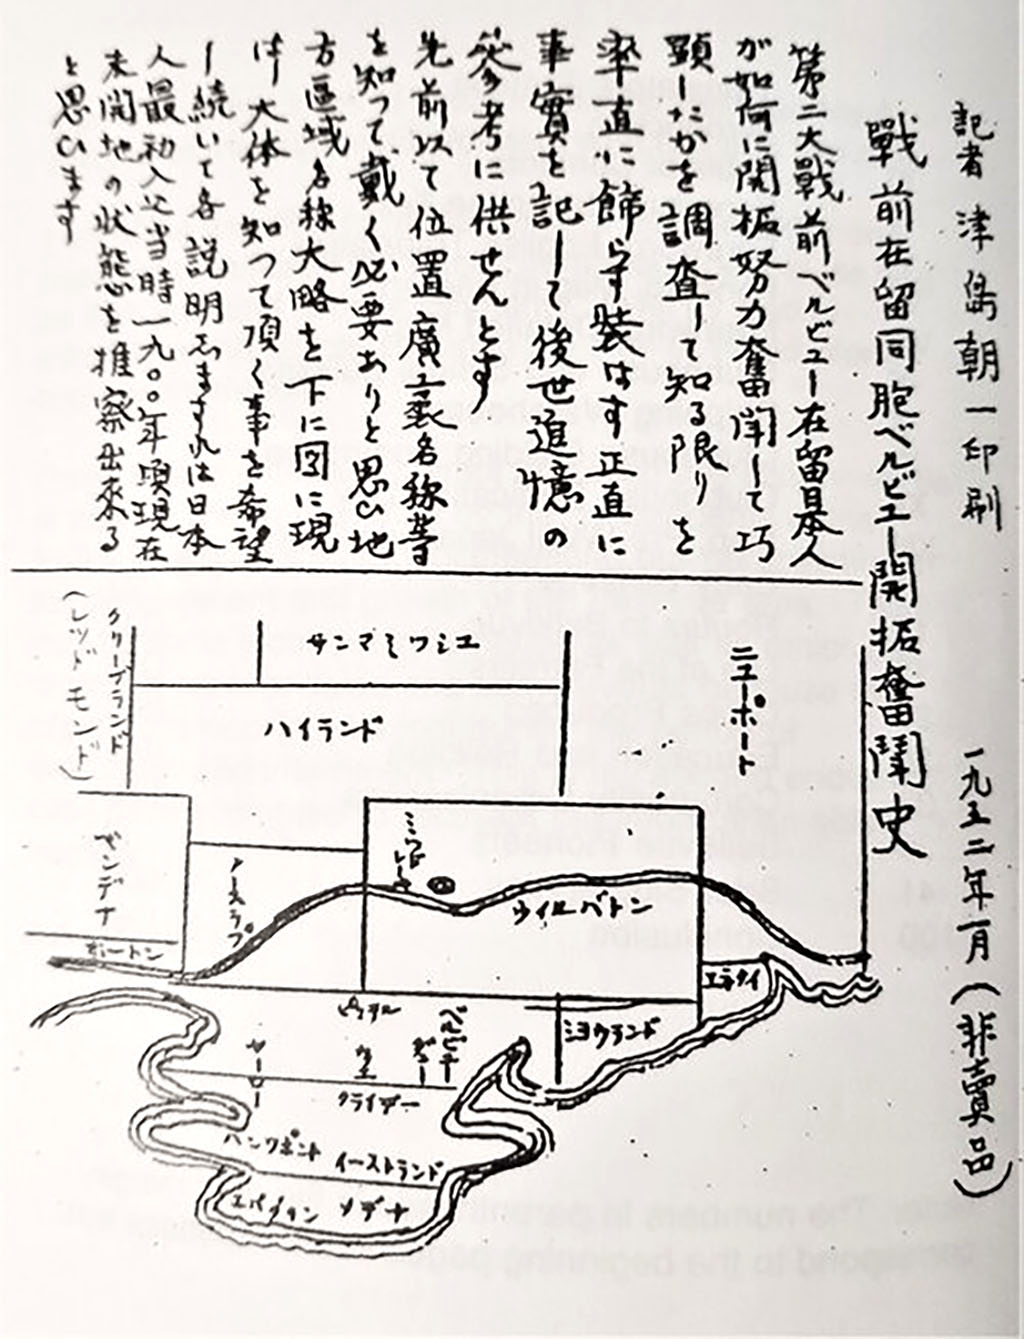 記者 津島朝一印刷
一九五二年一月(非賣品)
戰前在留同胞ベルビユー開拓奮闘史
第二大戰前ベルビュー在留日本人
が如何に開拓努力奮闘して巧
顕したかを調査して知る限りを
率直に飾らす裝はす正直に
事實を記して後世追憶の
参考に供せんとす
先前以て位置廣袤名称等
を知って戴く必要ありと思い地
方區域名稱大略を下に図に現
はし大体を知って頂く事を希望
し続いて各説明しますれは日本
人最初入込当時一九〇〇年頃現在
未開地の状態を推察出来る
と思います
ニューポート
サンマミワシユ
ハイランド
クリーブランド
(レッドモンド)
ミッドレーキ
ウイルバトン
ノースラプ
ベンデナ
ホートン
エネタイ
ミヨウランド
ベルビユー
クライデー
ハンツポイント
イーストランド
エバグリン
メデナ